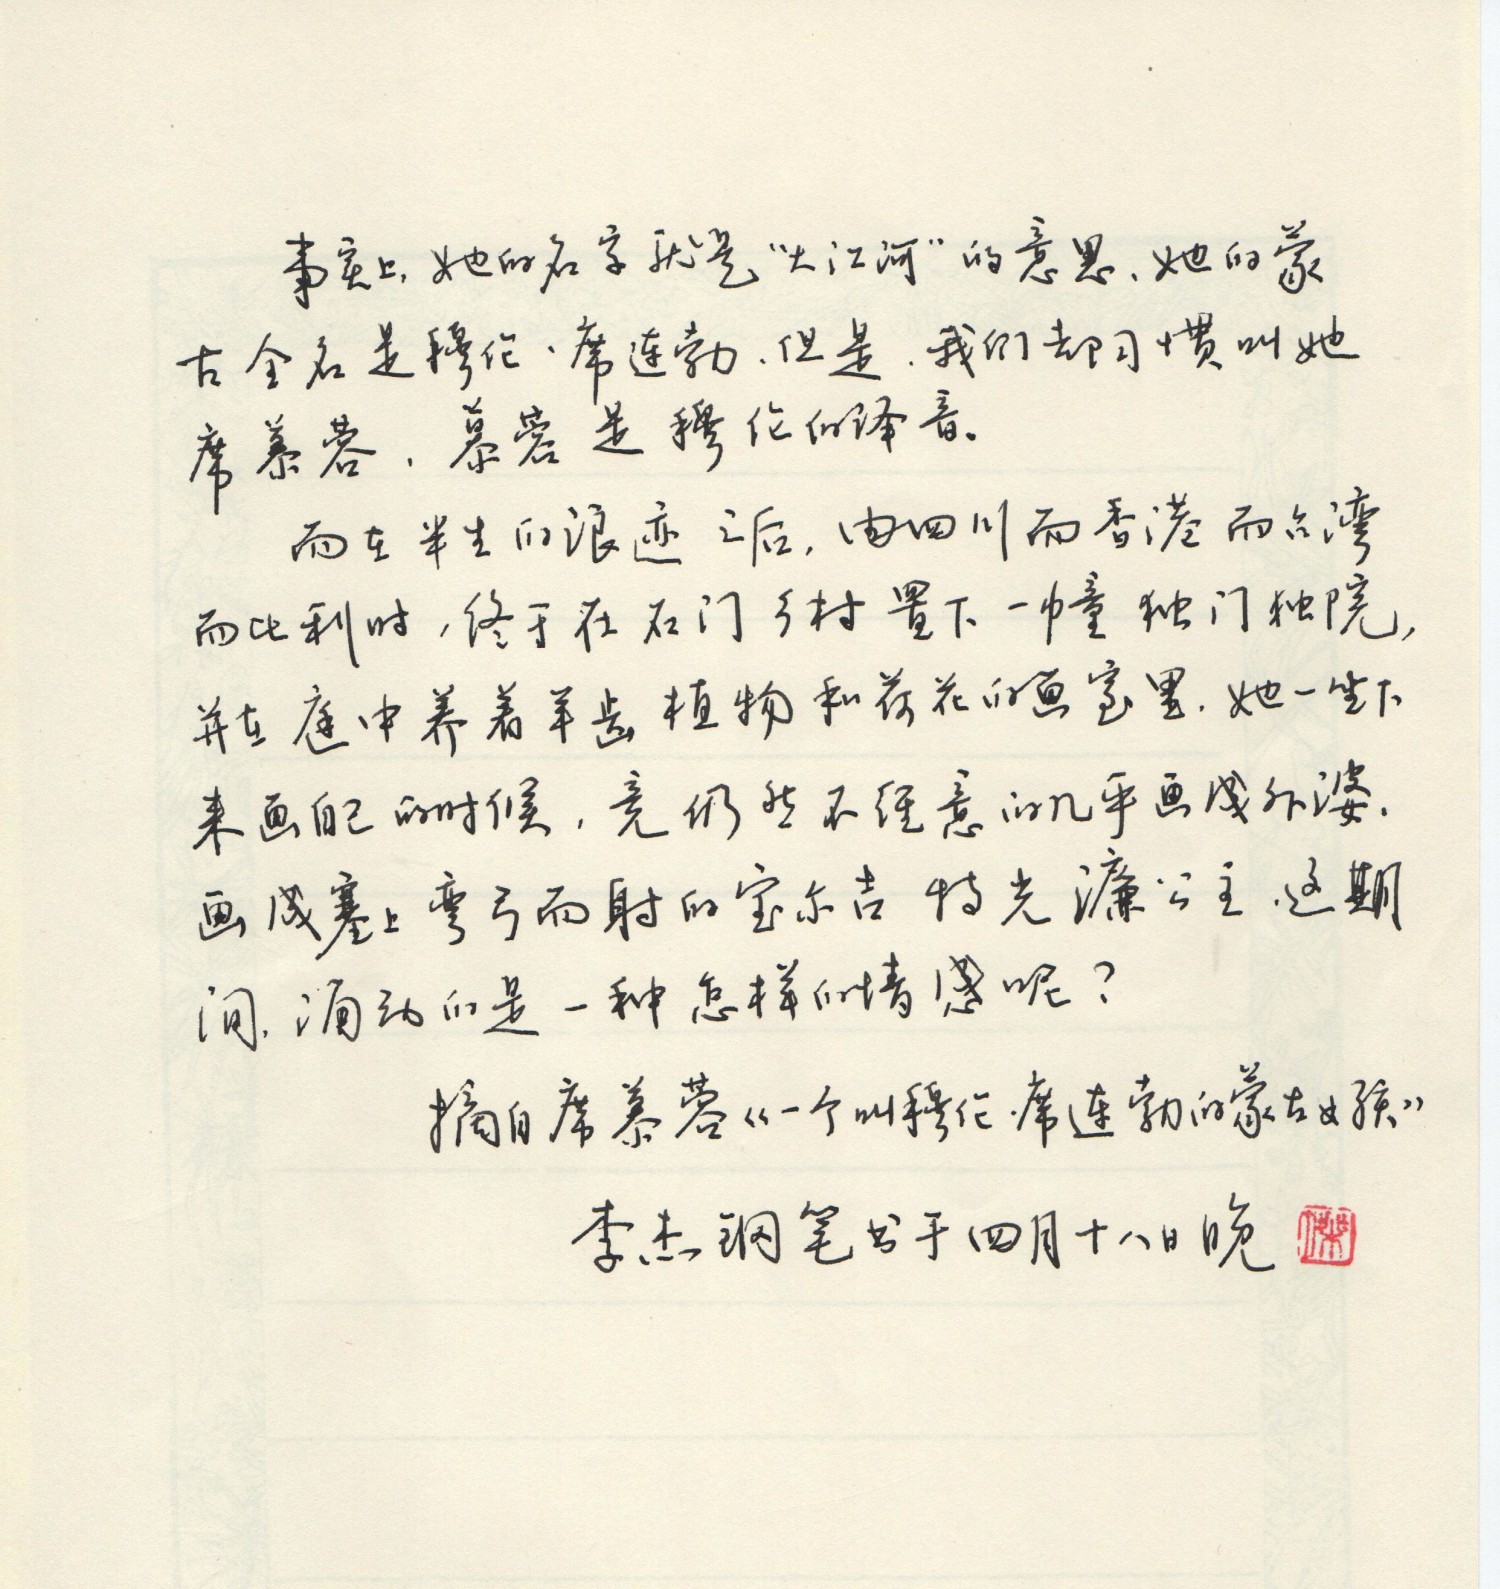 事实上,她的名字就是“大江河”的意思、她的蒙
古全名是穆伦·席连勃.但是.我们却习惯叫她
席慕蓉,慕蓉是穆伦的译音。
而在半生的浪迹之后,由四川而香港而台湾
而比利时,终于在石门乡村置下一幢独门独院,
并在庭中养着羊齿植物和荷花的画室里.她一坐下
来画自己的时候,竟仍然不经意的几乎画成外婆.
画成塞上弯弓而射的宝尔吉特光濂公主.这期
间.涌动的是一种怎样的情感呢?
摘自席慕蓉《一个叫穆伦·席连勃的蒙古女孩》
李杰钢笔书于四月十八日晚
杰